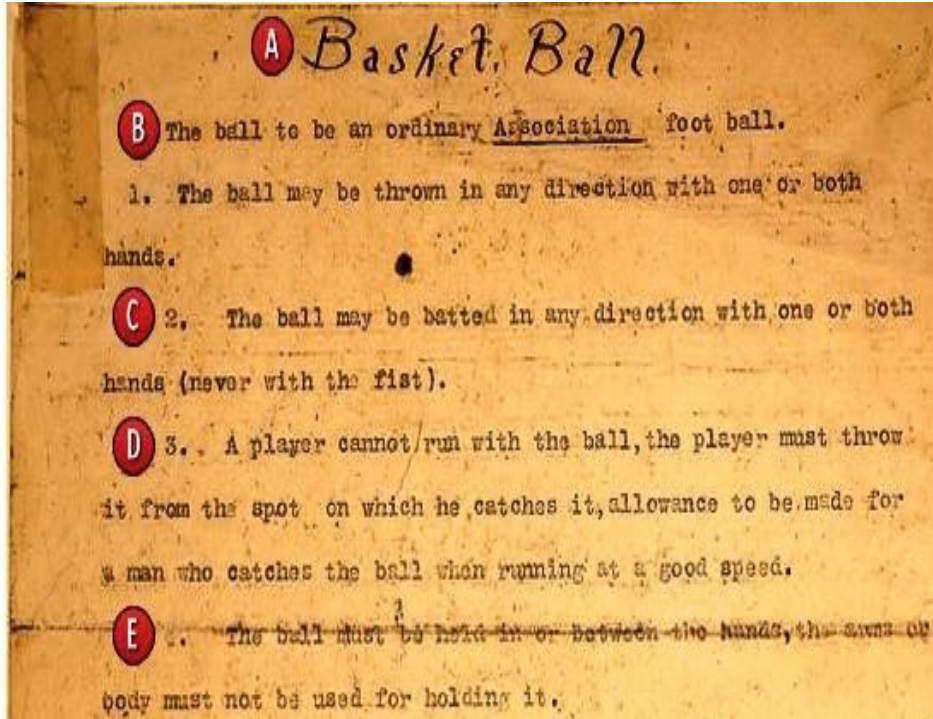 A Basket. Ball.
B The ball to be an ordinary Association foot ball.
1. The ball may be thrown in any direction with one or both
hands.
C 2. The ball may be batted in any direction with one or both
hands (never with the fist).
D 3.. A player cannot run with the ball, the player must throw
it from the spot on which he catches it, allowance to be made for
a man who catches the ball when running at a good speed.
E .. The ball must be held in or between the hands, the arms or
body must not be used for holding it.